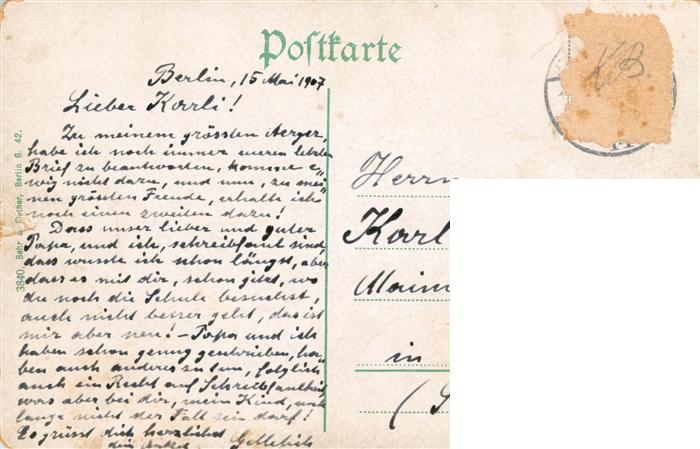 Postkarte
KB.
Berlin, 15 Mai 1907
Lieber Karli!
Zu meinem grössten Aerger,
habe ich noch immer eueren letzten
Brief zu beantworten, komme e„
wig nicht dazu, und nun, zu mei„
nen grössten Freude, erhalte ich
noch einen zweiten dazu!
Dass unser lieber und guter
Papa, und ich, schreibfaul sind,
dass wusste ich schon längst, aber
dass es mit dir, schon jetzt, wo
du noch die Schule besuchst,
auch nicht besser geht, das ist
mir aber neu! – Papa und ich
haben schon genug geschrieben, ha„
ben auch anderes zu tun, folglich
auch ein Recht auf Schreibfaulheit,
was aber bei dir, mein Kind, noch
lange nicht der Fall sein darf!
Es grüsst dich herzlichst
dein Onkel
3840. Berlin S. 42.
Herrn
Karl
in